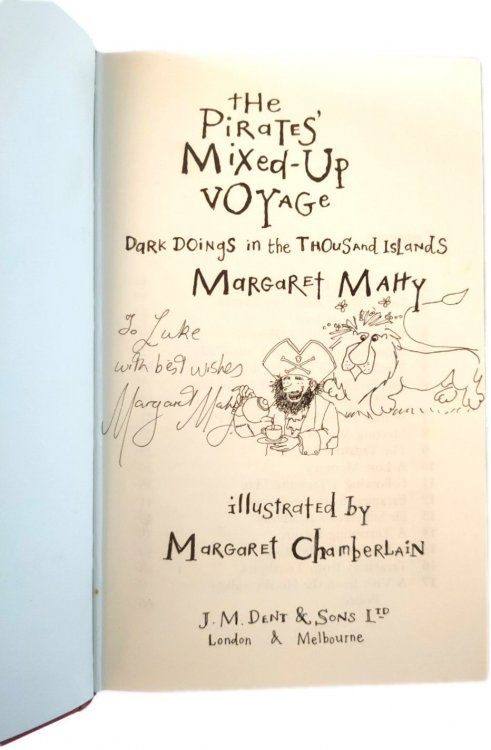 the
Pirates'
Mixed-Up
Voyage
Dark Doings in the Thousand Islands
Margaret Mahy
To Luke
with best wishes
Margaret Mahy
illustrated by
Margaret Chamberlain
J. M. Dent & Sons Ltd
London & Melbourne